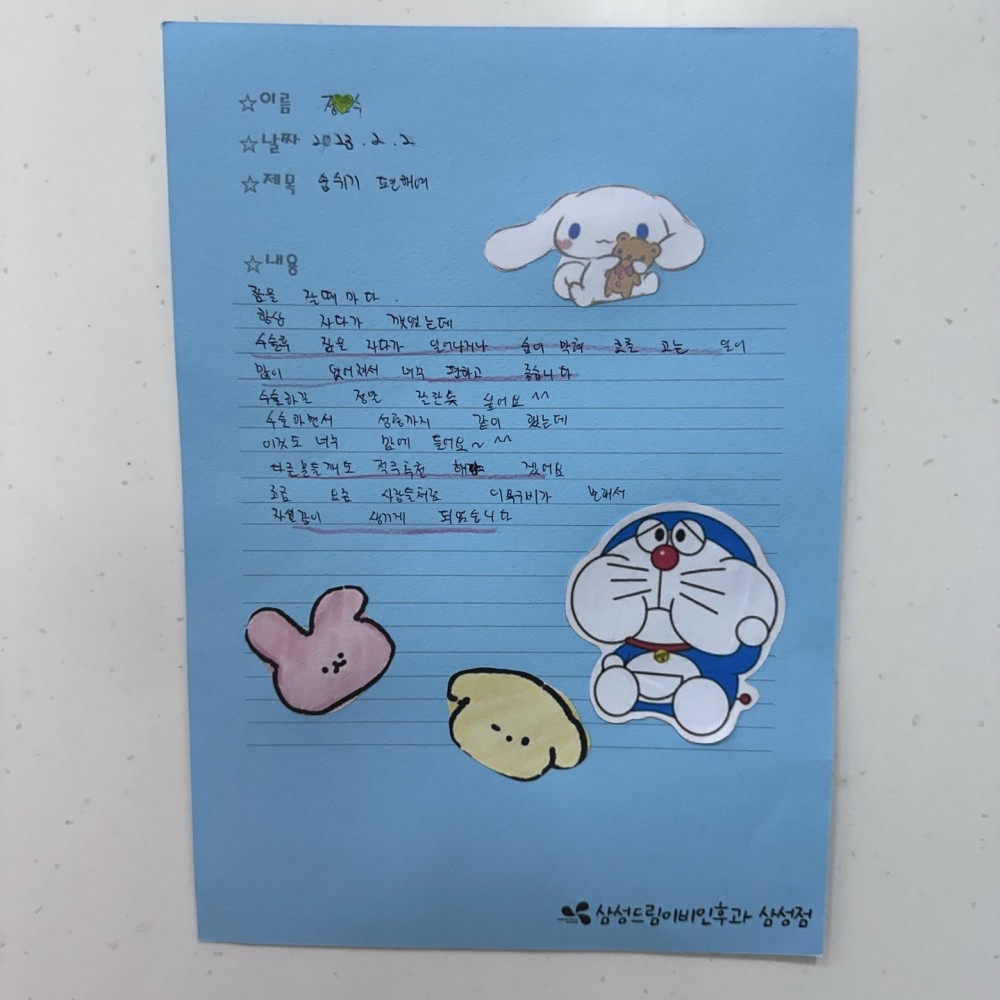 ☆이름 정💚수
☆날짜 2023.2.2
☆제목 숨쉬기 편해여
☆내용
잠을 잘때마다.
항상 자다가 깼었는데
수술후 잠을 자다가 일어나거나 숨이 막혀 코를 고는 일이
많이 없어져서 너무 편하고 좋습니다
수술하길 정말 잘한듯 싶어요 ^^
수술하면서 성형까지 같이 했는데
이것도 너무 맘에 들어요~ ^^
다른분들께도 적극추천 해 겠어요
조금 요즘 사람들처럼 이목구비가 보여서
자신감이 생기게 되었습니다
삼성드림이비인후과 삼성점